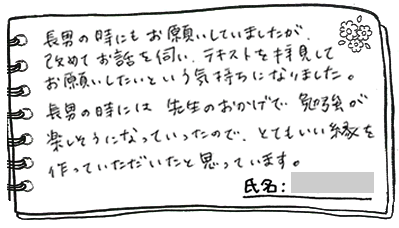 長男の時にもお願いしていましたが、
改めてお話を伺い、テキストを拝見して
お願いしたいという気持ちになりました。
長男の時には 先生のおかげで 勉強が
楽しそうになっていったので、とてもいい縁を
作っていただいたと思っています。
氏名：